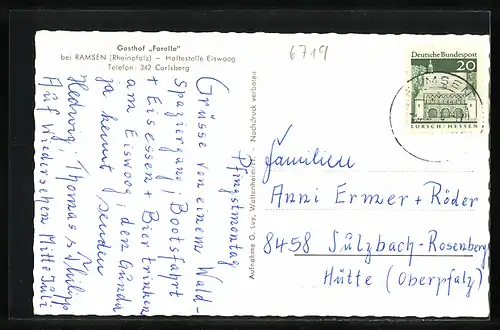 Gasthof „Forelle"
bei RAMSEN (Rheinpfalz) – Haltestelle Eiswoog
Telefon: 342 Carlsberg
6719
Pfingstmontag
Grüsse von einem Wald-
Spaziergang, Bootsfahrt
+ Eisessen + Bier trinken
am Eiswoog, den Gunda
ja kennt, senden
Hedwig, Thomas + Philipp
Auf Wiedersehen Mitte Juli
Aufnahme O. Lucy, Wattenheim/Pf. – Nachdruck verboten
Deutsche Bundespost
20
LORSCH/HESSEN
RAMSEN
Familien
Anni Ermer + Röder
8458 Sulzbach-Rosenberg
Hütte (Oberpfalz)